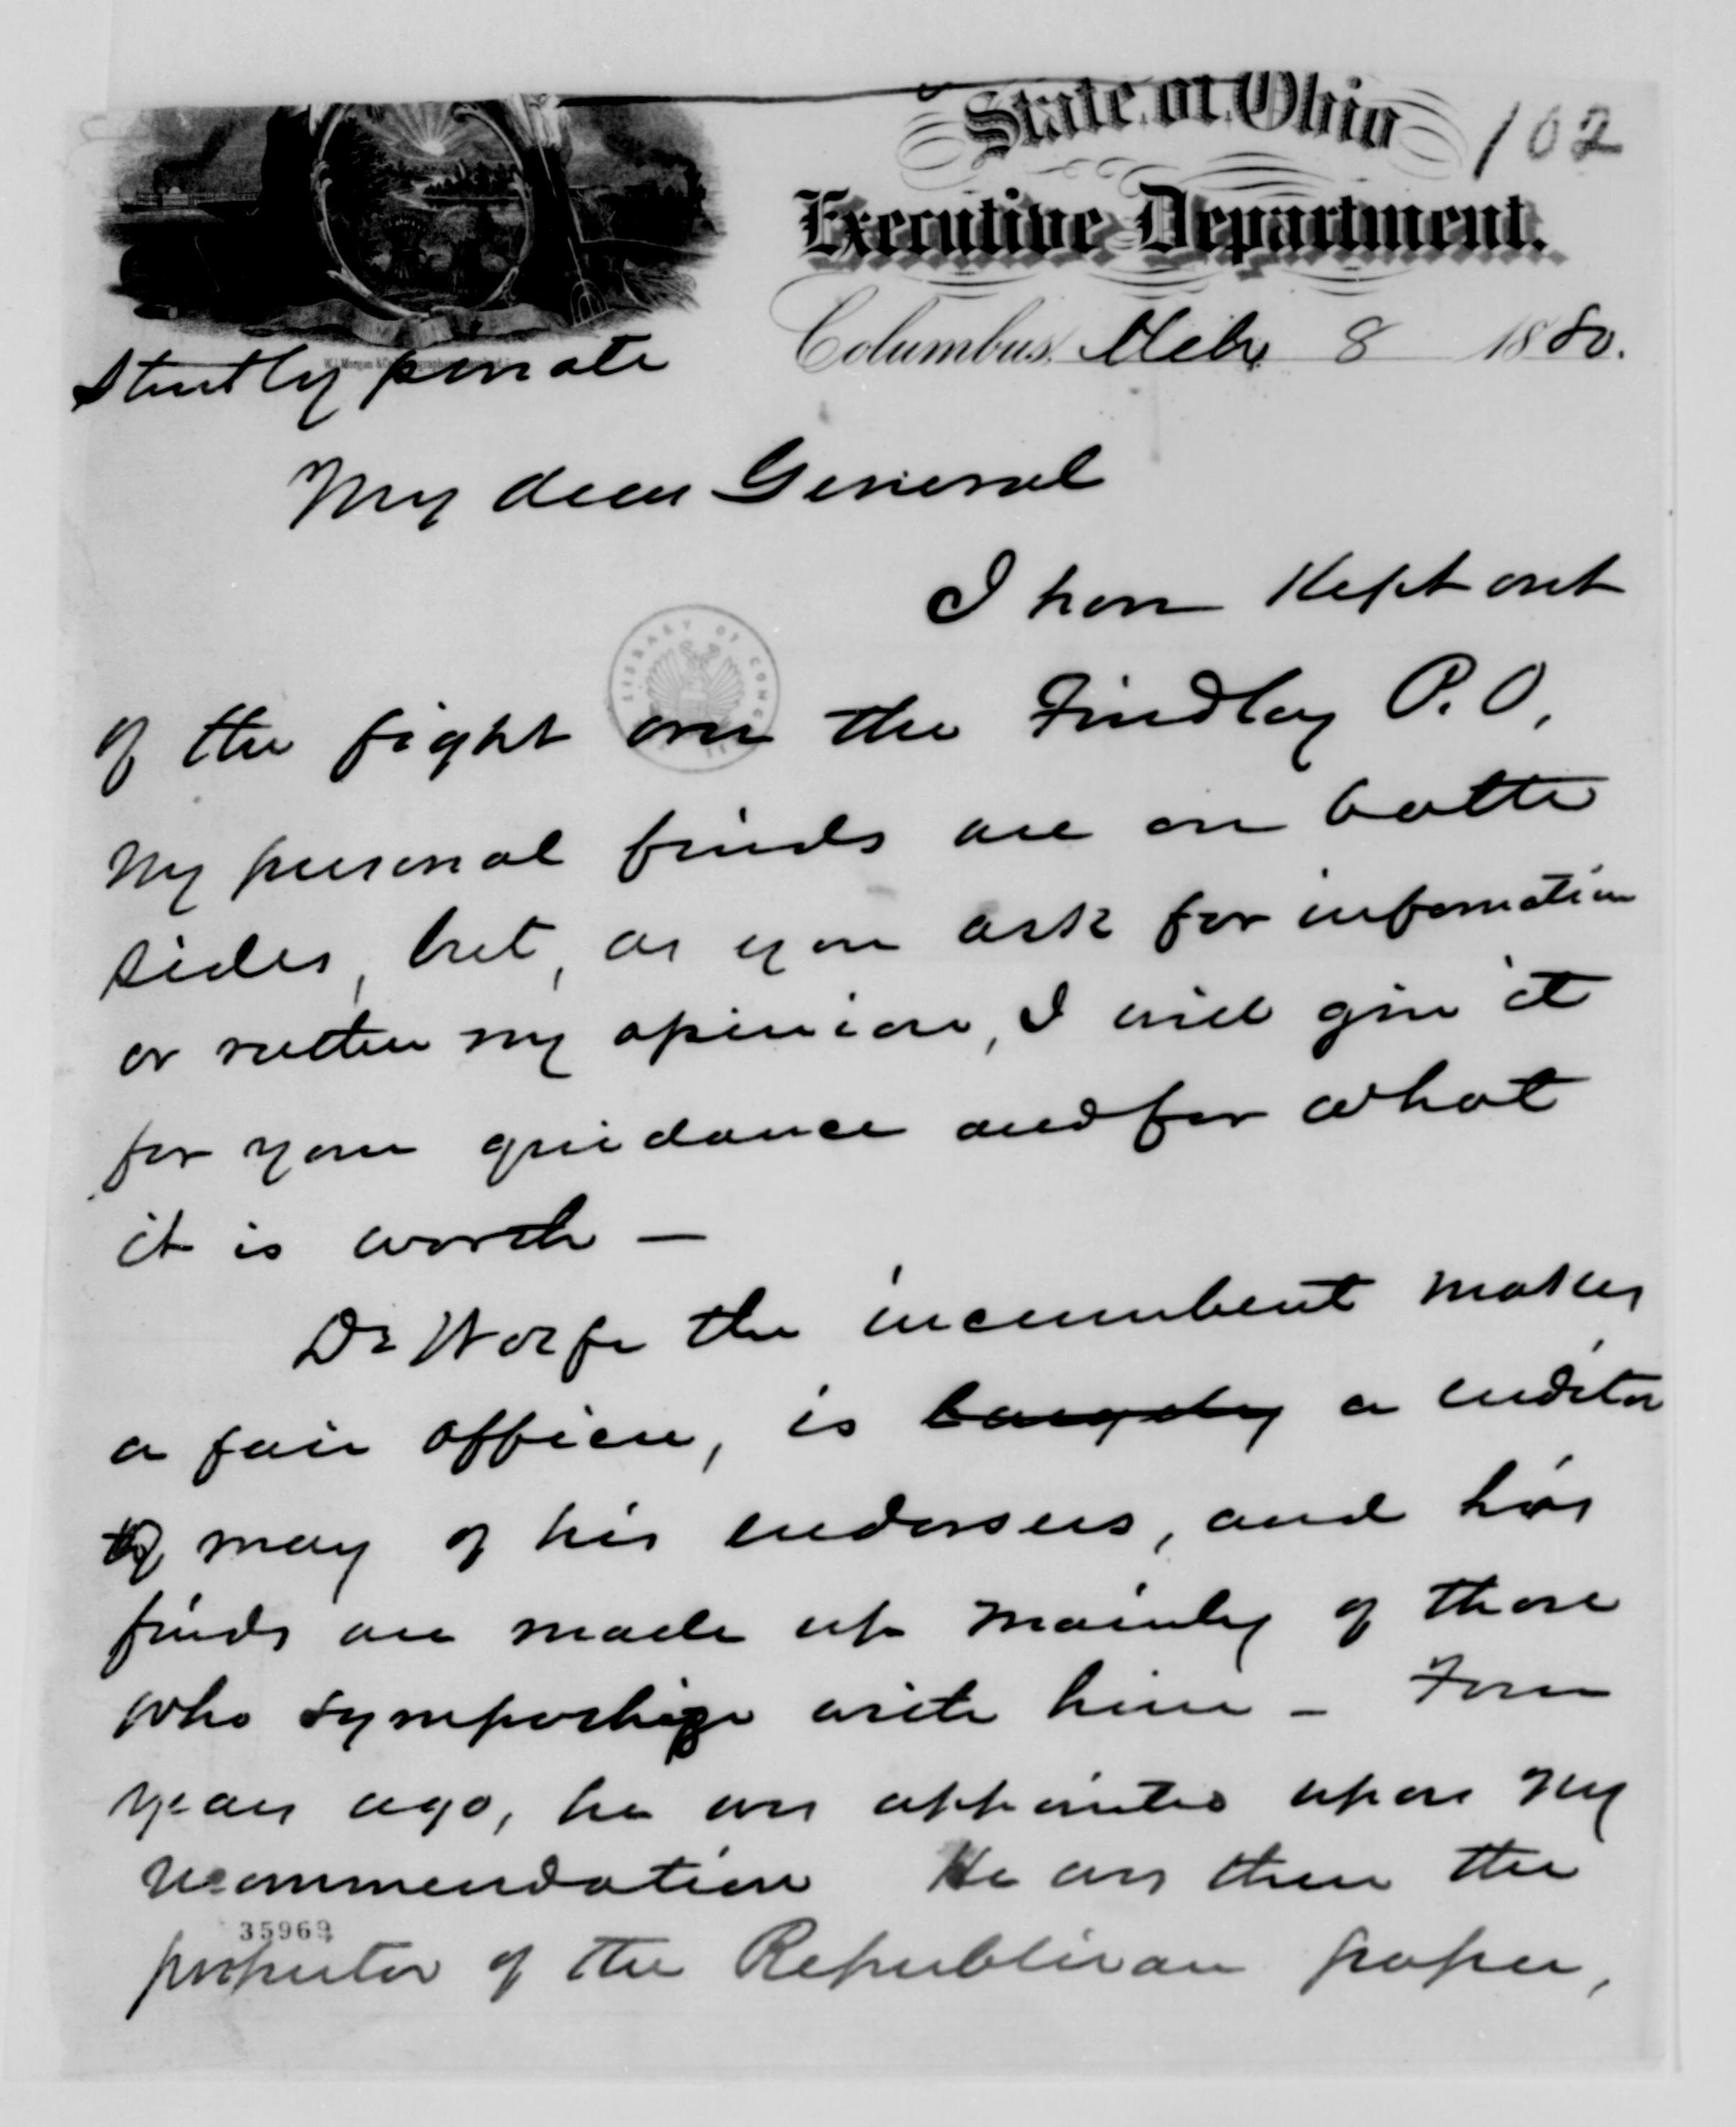 State of Ohio
102
Executive Department.
Columbus, Mch 8 1880.
Strictly private
My dear General
I have kept out
of the fight over the Findlay P. O.
My personal friends are on both
sides, but, as you ask for information
or rather my opinion, I will give it
for your guidance and for what
it is worth —
Dr the incumbent makes
a fair officer, is largely a creditor
of many of his endorsers, and his
friends are made up mainly of those
who sympathize with him – Four
years ago, he was appointed upon my
recommendation He was then the
35969
proprietor of the Republican paper,
LIBRARY OF CONG